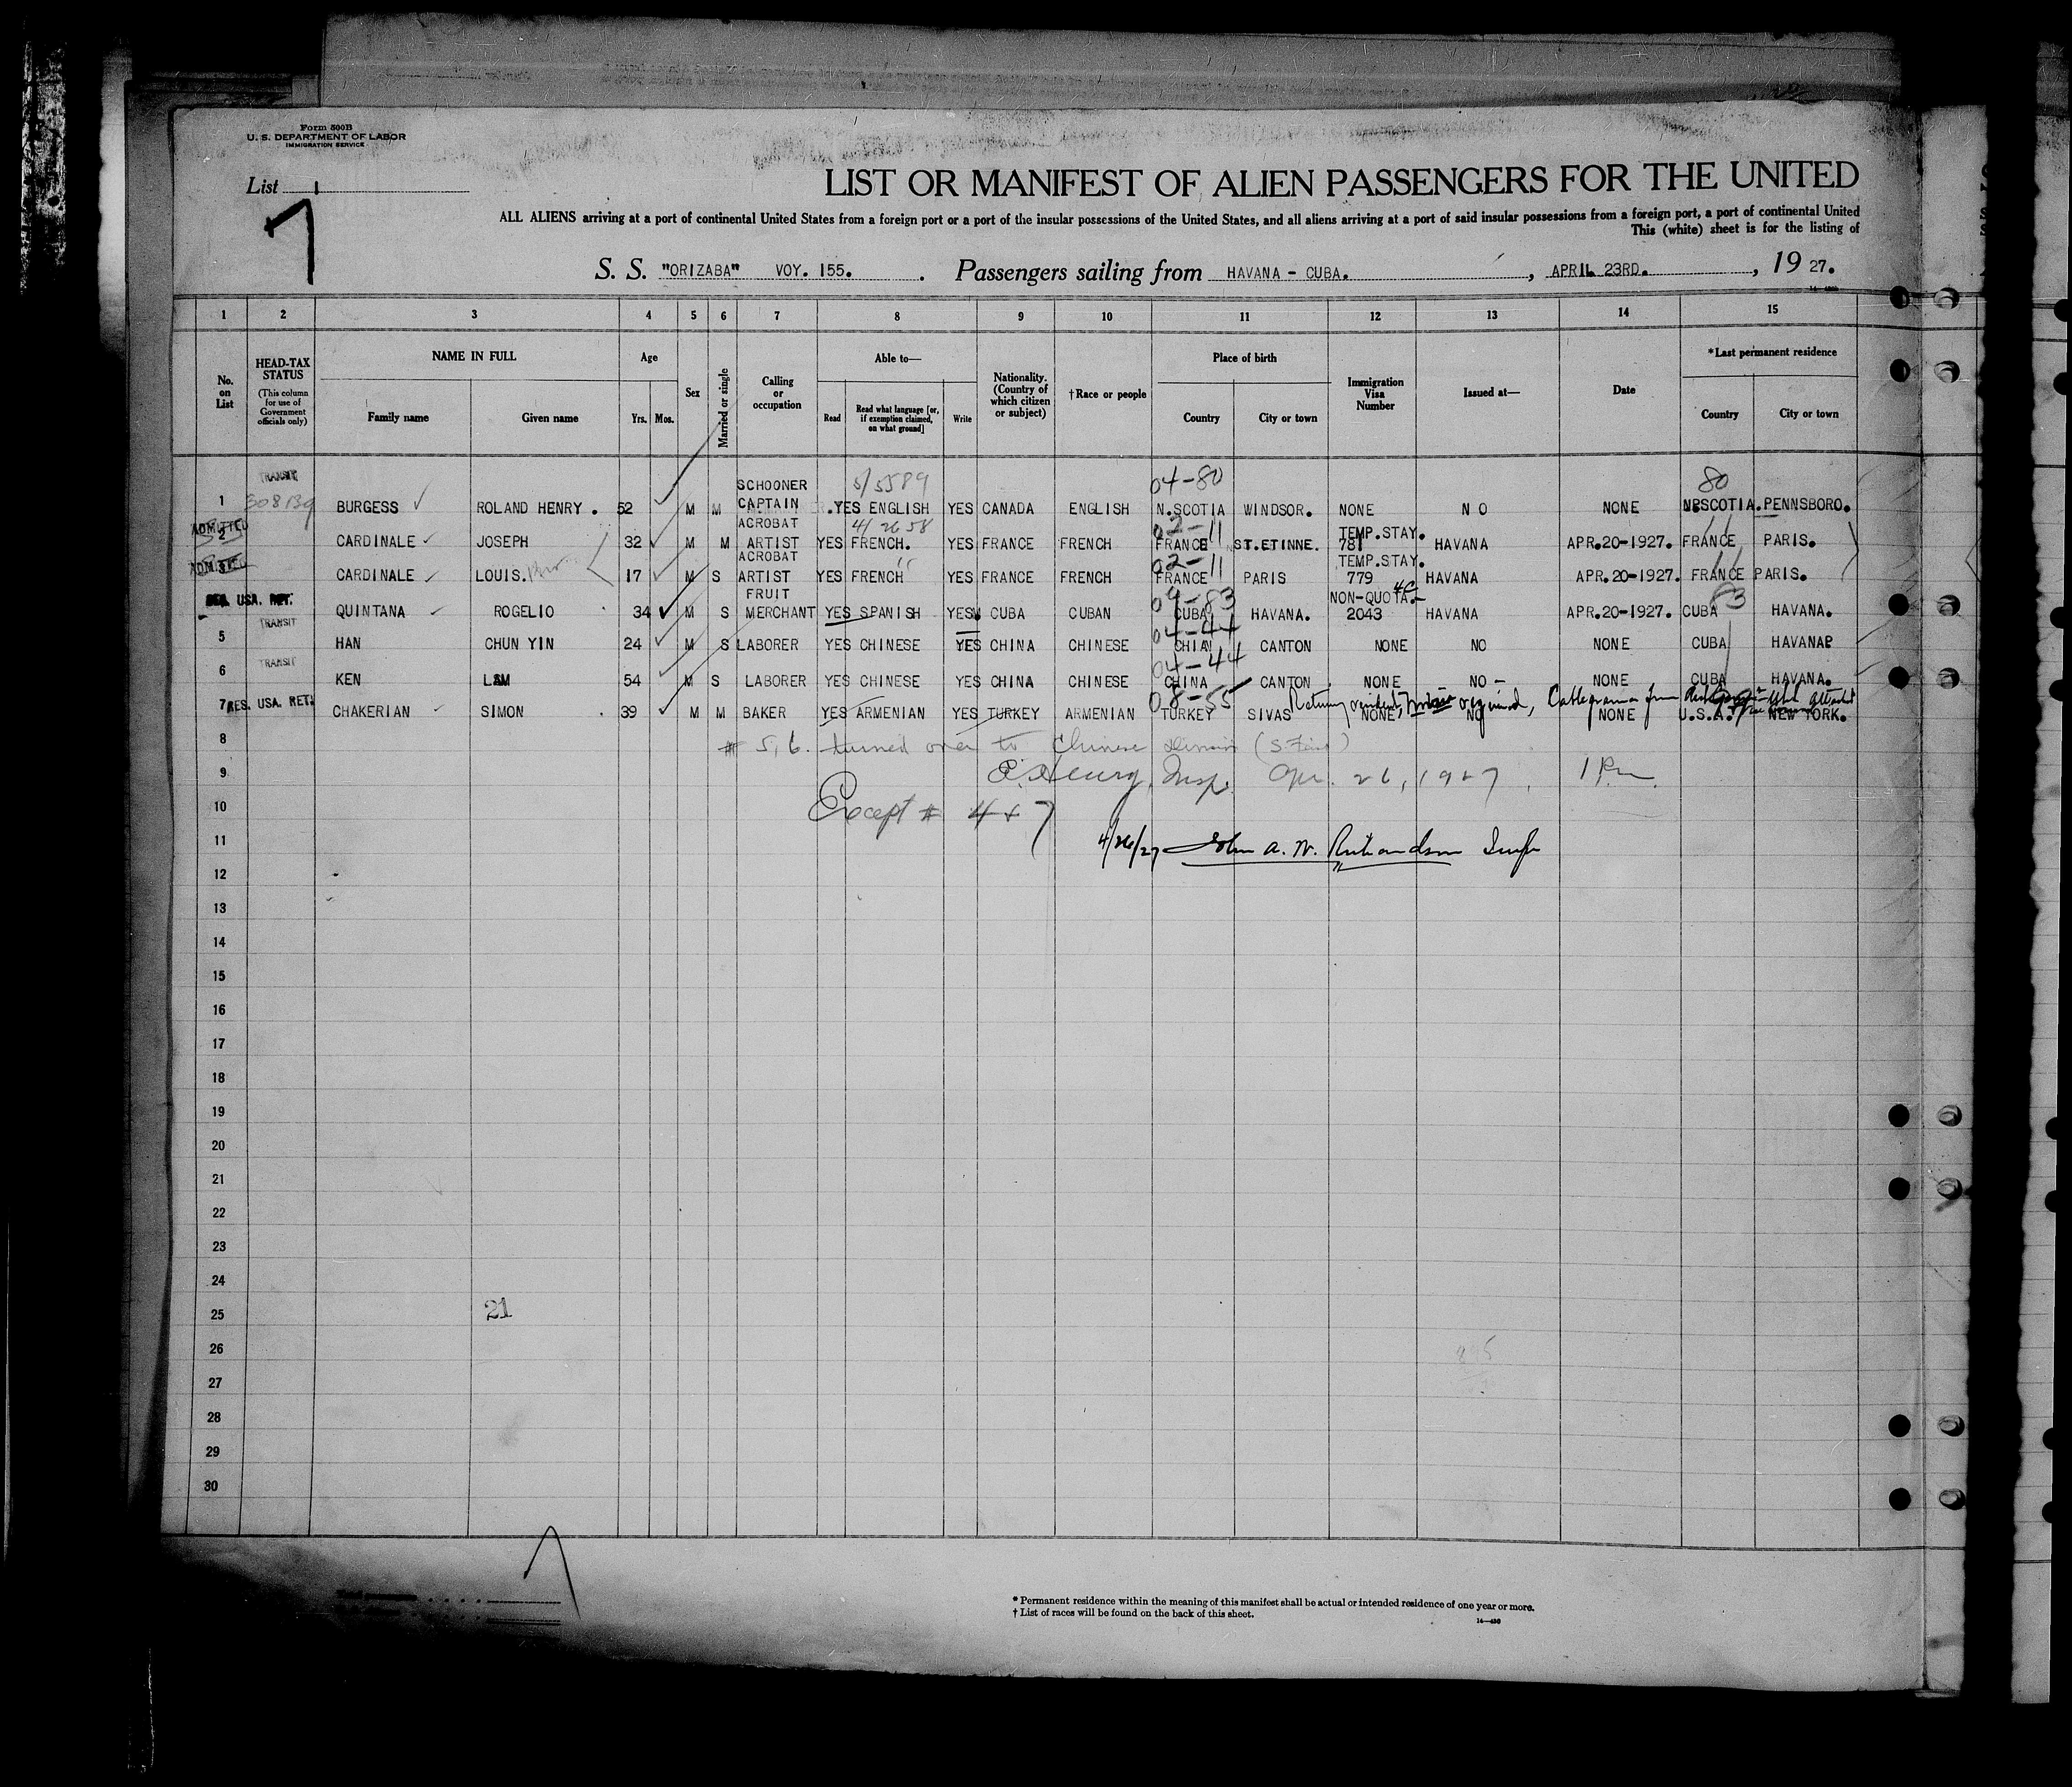 Form 500B
U. S. DEPARTMENT OF LABOR
IMMIGRATION SERVICE
List 1
7
LIST OR MANIFEST OF ALIEN PASSENGERS FOR THE UNITED
ALL ALIENS arriving at a port of continental United States from a foreign port or a port of the insular possessions of the United States, and all aliens arriving at a port of said insular possessions from a foreign port, a port of continental United
This (white) sheet is for the listing of
S. S. "ORIZABA" VOY. 155. Passengers sailing from HAVANA - CUBA. , APRIL 23RD. , 19 27.
1 2 3 4 5 6 7 8 9 10 11 12 13 14 15
No. on List
HEAD-TAX STATUS (This column for use of Government officials only)
NAME IN FULL Family name Given name
Age Yrs. Mos.
Sex
Married or single
Calling or occupation
Able to— Read Read what language [or, if exemption claimed, on what ground] Write
Nationality. (Country of which citizen or subject)
†Race or people
Place of birth Country City or town
Immigration Visa Number
Issued at—
Date
*Last permanent residence Country City or town
TRANSIT SCHOONER 5/5589 04-80 80
1 308139 BURGESS ROLAND HENRY . 52 M M CAPTAIN .YES ENGLISH YES CANADA ENGLISH N.SCOTIA WINDSOR. NONE N O NONE SCOTIA.PENNSBORO.
ADMITTED ACROBAT 4/2658 02-11 TEMP.STAY. 11
2 CARDINALE JOSEPH 32 M M ARTIST YES FRENCH. YES FRANCE FRENCH FRANCE ST.ETINNE. 781 HAVANA APR.20-1927. FRANCE PARIS.
ADMITTED ACROBAT 02-11 TEMP.STAY. 11
3 CARDINALE LOUIS. 17 M S ARTIST YES FRENCH YES FRANCE FRENCH FRANCE PARIS 779 HAVANA APR.20-1927. FRANCE PARIS.
USA. RET. FRUIT 04-83 NON-QUOTA.- 4C 83
QUINTANA ROGELIO 34 M S MERCHANT YES SPANISH YES CUBA CUBAN CUBA HAVANA. 2043 HAVANA APR.20-1927. CUBA HAVANA.
TRANSIT 04-44
5 HAN CHUN YIN 24 M S LABORER YES CHINESE YES CHINA CHINESE CHIAN CANTON NONE NO NONE CUBA HAVANAP
TRANSIT 04-44
6 KEN LAM 54 M S LABORER YES CHINESE YES CHINA CHINESE CHINA CANTON NONE NO - NONE CUBA HAVANA.
08-55 Returning resident, no visa required, Cablegram from
7 RES. USA. RET. CHAKERIAN SIMON . 39 M M BAKER YES ARMENIAN YES TURKEY ARMENIAN TURKEY SIVAS NONE, NO NONE U.S.A. NEW YORK.
8 # 5, 6. turned over to Chinese Division
9 Insp. Apr. 26, 1927 1 Pm
10 Except # 4 + 7
11 4/26/27 John A. W. Richardson Insp
12
13
14
15
16
17
18
19
20
21
22
23
24
25 21
26 895
27
28
29
30
* Permanent residence within the meaning of this manifest shall be actual or intended residence of one year or more.
† List of races will be found on the back of this sheet.
14—430